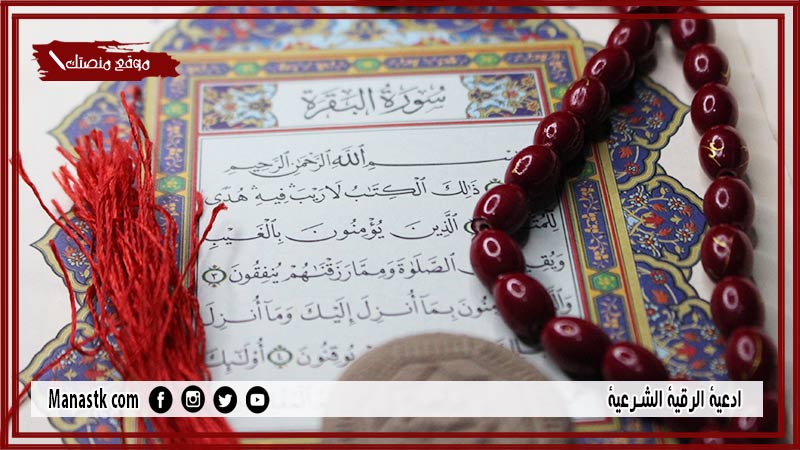 موقع منصتك
سُورَةُ البَقَرَةِ
ـمِ اللَّهِ الرَّحْمَٰنِ الرَّحِيمِ
ذَٰلِكَ الْكِتَابُ لَا رَيْبَ فِيهِ هُدًى
الَّذِينَ يُؤْمِنُونَ بِالْغَيْبِ
الصَّلَوٰةَ وَمِمَّا رَزَقْنَاهُمْ يُنفِقُونَ ٣
بِمَآ أُنزِلَ إِلَيْكَ وَمَآ أُنزِلَ
يُوقِنُونَ ٤ أُوْلَٰٓئِكَ
Manastk com
ادعية الرقية الشرعية